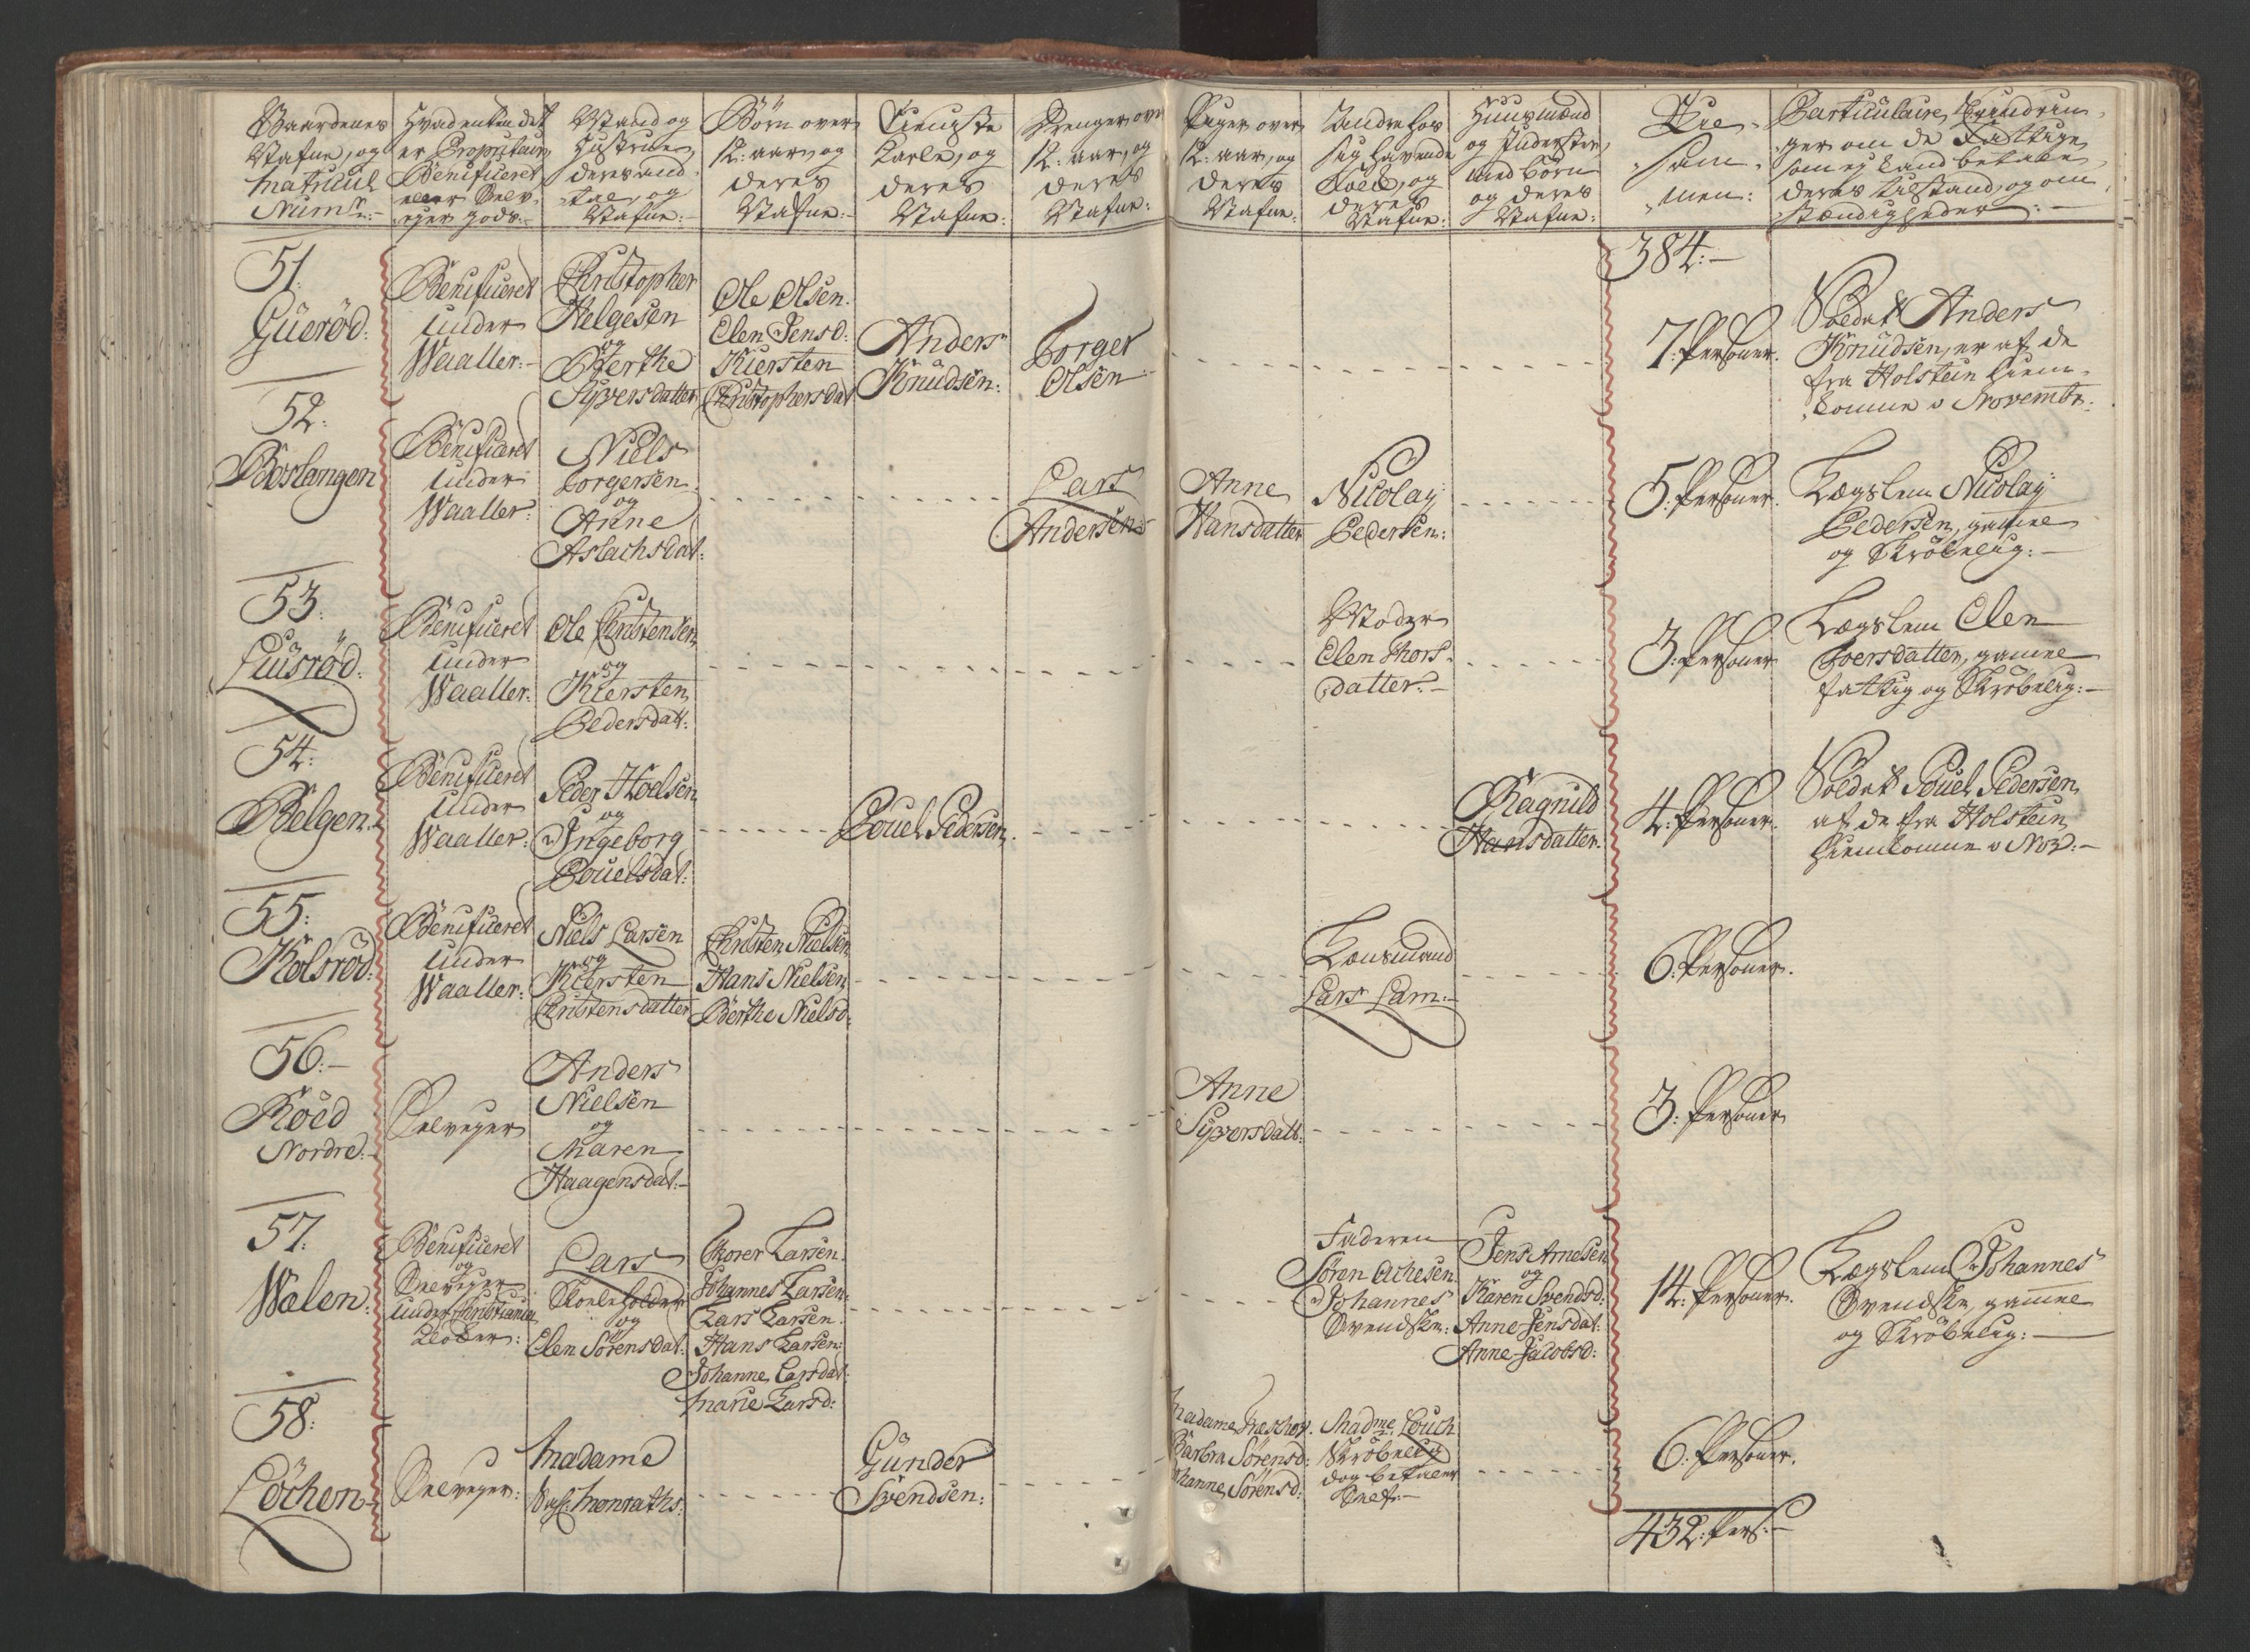 Gaardenes
Nafne, og
Matricul
Num̅r:-
Hvad enten det
er Proprietair,
Beneficeret
eller Selv-
eyer gods:-
Mand og
Hustruer,
deres and-
tal, og
Nafne:-
Børn over
12: aar, og
deres
Nafne:-
Tieniste
Karle, og
deres
Nafne:
Drenger over
12: aar, og
deres
Nafne:
Piger over
12: aar, og
deres
Nafne:
Andre hos
sig havende
Folck, og
deres
Nafne:
Huusmænd
og Inderster,
med børn
og deres
Nafne:
Til-
sam-
men:
Particulaire Erindrin-
ger om de Fattige
som ej kand betale,
deres tilstand, og om-
stændigheder:-
384:-
51.
Guerød:
Beneficeret
under
Waaller:-
Christopher
Helgesen
og
Berthe
Syversdatter
Ole Olsen.
Elen Jensd:
Kiersten
Christophersdat
Anders
Knudsen:
Torger
Olsen
7: Personer.
Soldat Anders
Knudsen, er af de
fra Holstein hiem-
komne v Novembr:
52:
Boslangen
Beneficeret
under
Waaller:
Niels
Torgersen
og
Anne
Aslachsdat:
Lars
Andersen
Anne
Hansdatter
Nicolay
Pedersen:
5: Personer.
Lægslem Nicolay
Pedersen, gam̅el
og Skrøbelig:-
53.
Luisrød:
Beneficeret
under
Waaller:
Ole Christensen,
og
Kiersten
Pedersdatt:
Moder
Elen Thors-
datter:-
3: Personer
Lægslem Elen
Thoersdatter, gamel
fattig og Skrøbelig:-
54:
Belgen:
Beneficeret
under
Waaller:
Peder Hoelsen
og
Ingeborg
Pouelsdat:
Pouel Pedersen
Ragnild
Hansdatter.
4: Personer.
Soldat Pouel Pedersen,
af de fra Holstein
hiemkomne v Nov:-
55:
Kolsrød:
Beneficeret
under
Waaller:
Niels Larsen
og
Kiersten
Christensdatter
Christen Nielsen,
Hans Nielsen,
Berthe Nielsd:
Lænsmand
Lars Lam:-
6: Personer.
56:-
Röed
Nordre:
Selveyer
Anders
Nielsen
og
Maren
Haagensdat:-
Anne
Syversdatt:
3: Personer
57.
Wælen:
Beneficeret
og
Selveyer
under Christiania
Kloster:
Lars
Skoeleholder
og
Elen Sørensdat:
Thorer Larsen.
Johannes Larsen.
Lars Larsen.
Hans Larsen:
Johanne Larsdat:
Marie Larsd:
Faderen
Søren Achesen.
Johannes
Svendsk:
Jens Arnesen
og
Karen Svendsd:
Anne Jensdat:
Anne Jacobsd:
14: Personer.
Lægslem Johannes
Svendsk, gam̅el
og Skrøbelig:-
58:
Löchen
Selveyer:
Madame
Monraths:
Gunder
Svendsen:
Madame
Barbra Sørensd:
Johanne Sørensd:
Madme
Skrøbelig
dog betaler
Self:-
6: Personer.
432: Pers:-